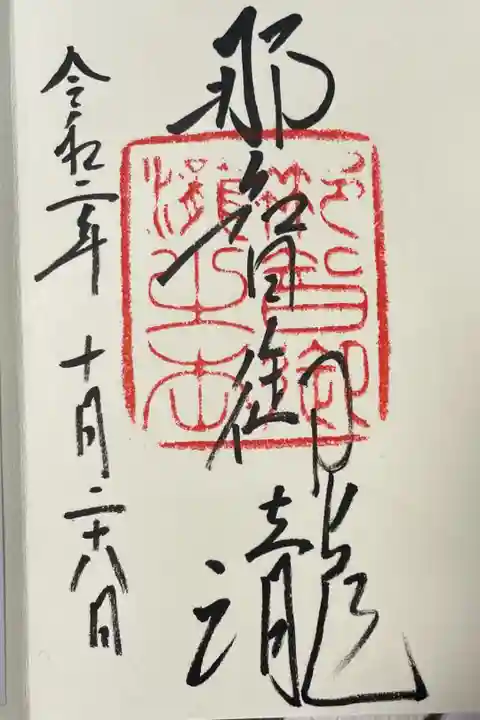 那智御瀧
令和二年十月二十八日